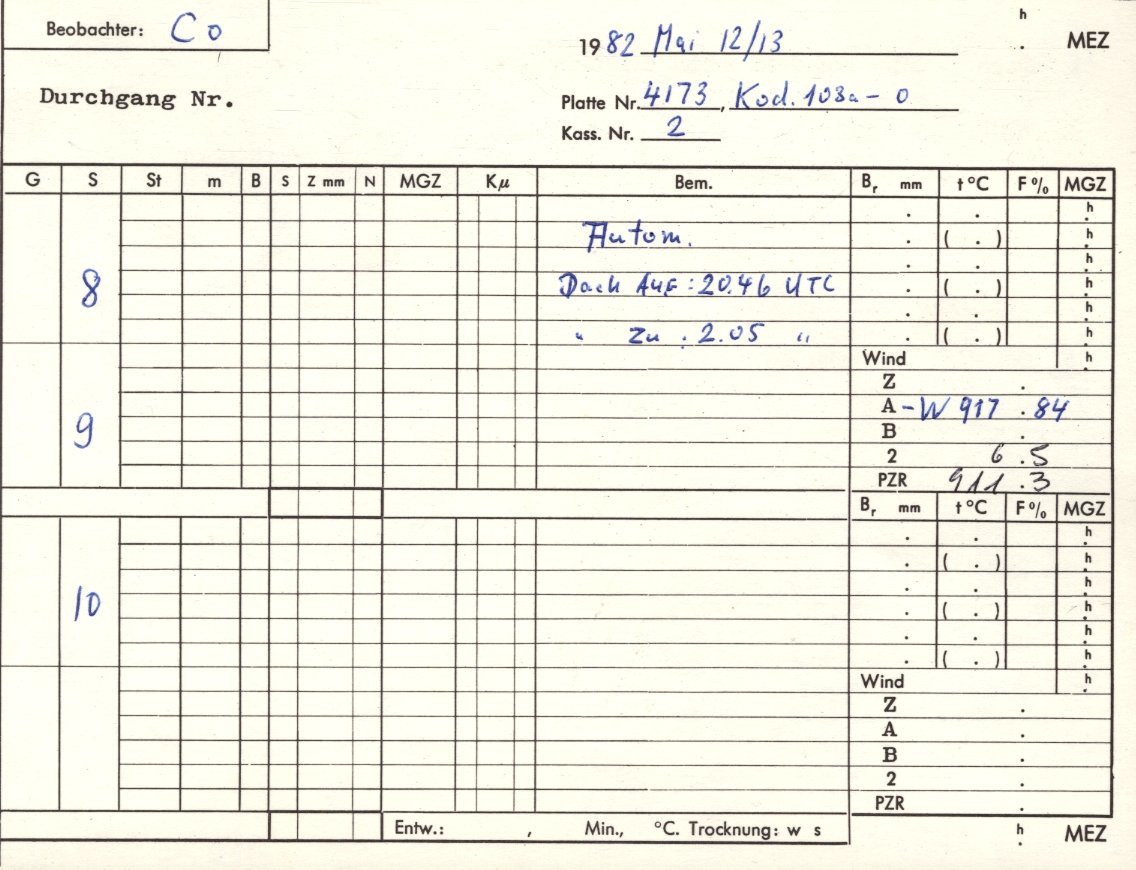 Beobachter: Co
h
1982 Mai 12/13 . MEZ
Durchgang Nr.
Platte Nr. 4173, Kod. 103a-0
Kass. Nr. 2
G S St m B S Z mm N MGZ Kμ Bem. Br mm t °C F % MGZ
. . h
Autom. . ( . ) h
. . h
8 Dach Auf : 20.46 UTC . ( . ) h
. . h
" Zu : 2.05 " . ( . ) h
Wind h
Z .
A - W 917 . 84
9 B .
2 6 . 5
PZR 911 . 3
Br mm t °C F % MGZ
. . h
. ( . ) h
. . h
10 . ( . ) h
. . h
. ( . ) h
Wind h
Z .
A .
B .
2 .
PZR .
Entw.: , Min., °C. Trocknung: w s h . MEZ